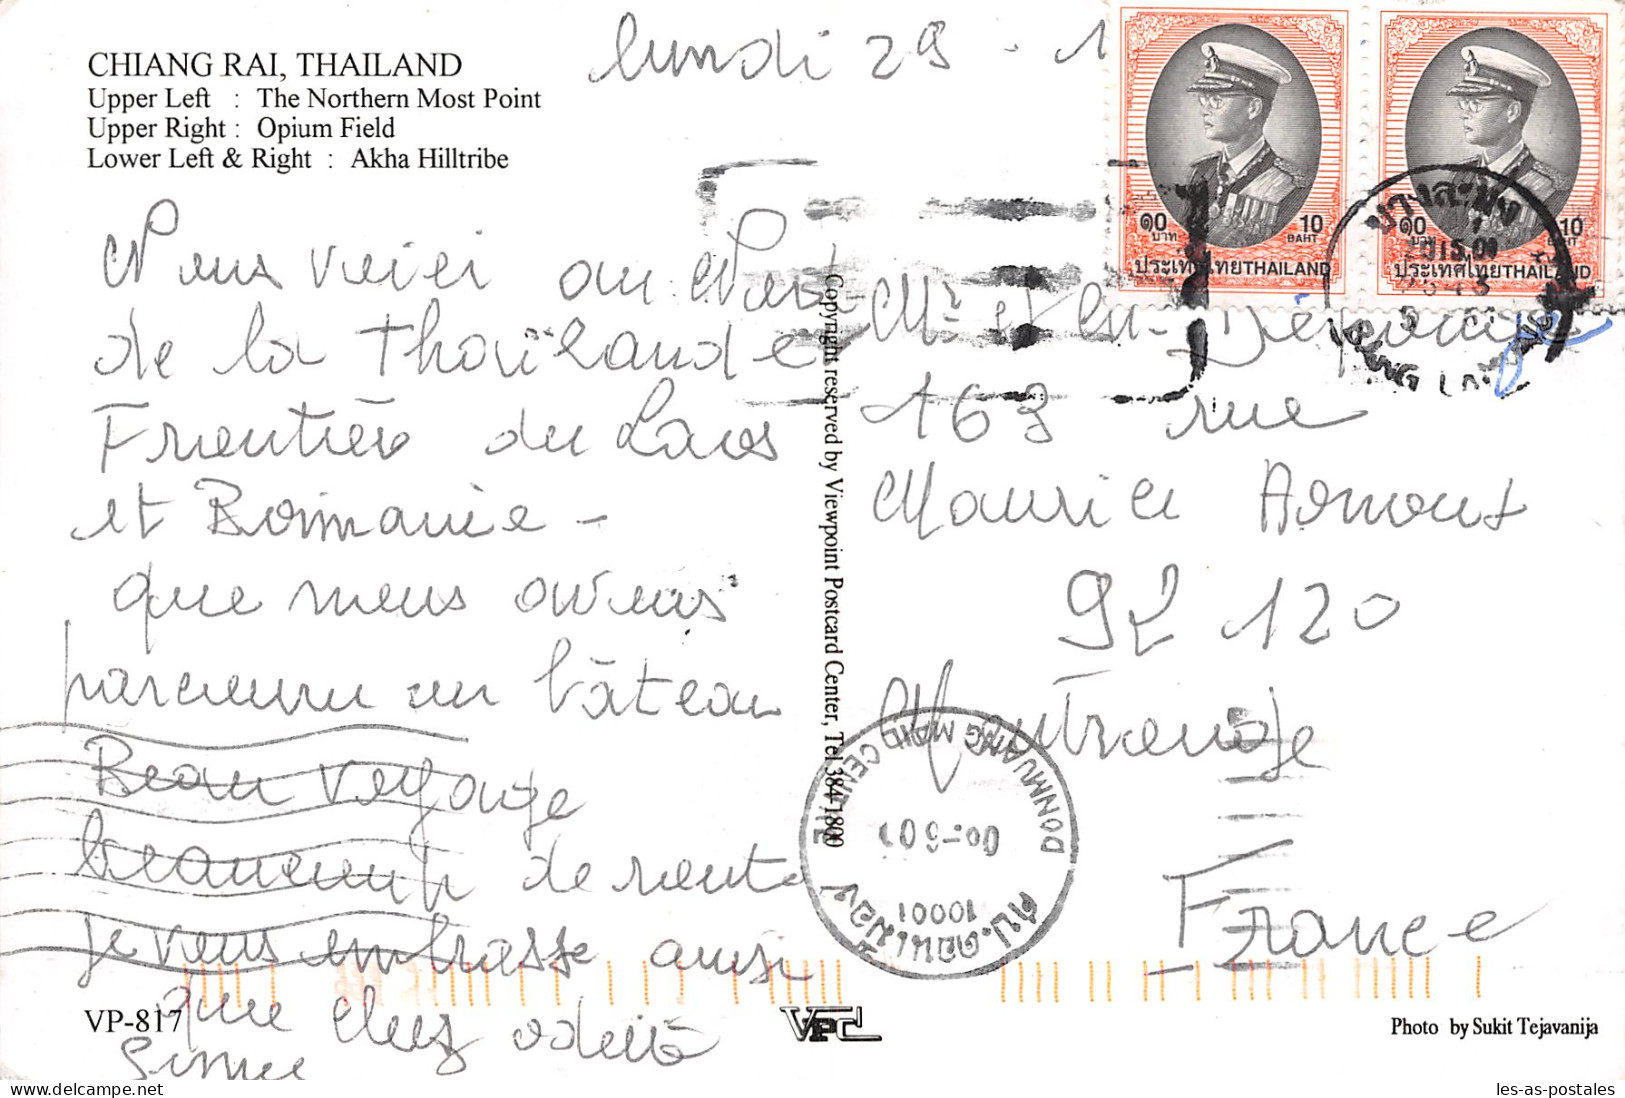 CHIANG RAI, THAILAND
Upper Left : The Northern Most Point
Upper Right : Opium Field
Lower Left & Right : Akha Hilltribe
lundi 29 - 1
๑๐ บาท 10 BAHT
ประเทศไทย THAILAND
๑๐ บาท 10 BAHT
ประเทศไทย THAILAND
Nous voici au Nord
de la Thaïlande
Frontière du Laos
et Birmanie -
que nous avons
parcouru en bâteau
Beau voyage
beaucoup de route
je vous embrasse ainsi
que chez odette
Simone
Copyright reserved by Viewpoint Postcard Center, Tel 384-1800
Mr et
163 rue
Maurice Arnoux
92 120
Montrouge
France
DONMUANG MAIL CENTRE
10001
VP-817
VPC
Photo by Sukit Tejavanija
delcampe.net
les-as-postales